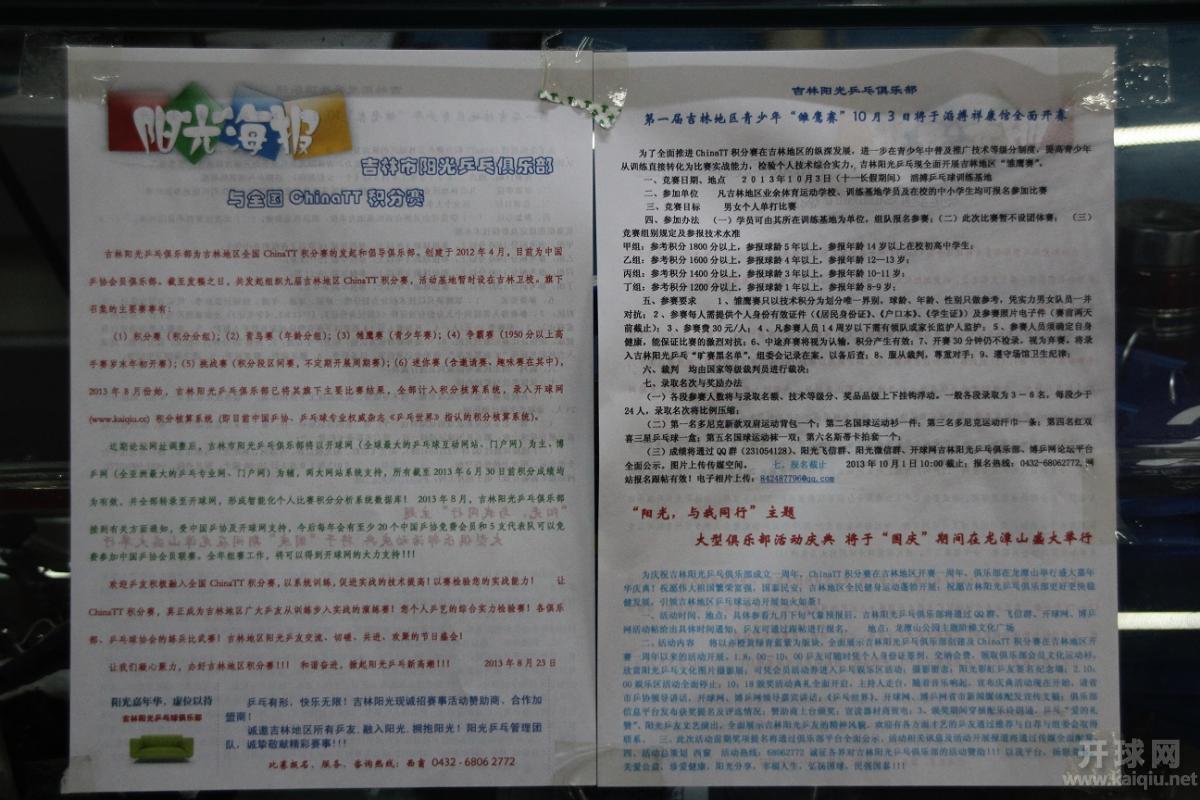 阳光海报
吉林市阳光乒乓俱乐部
与全国 ChinaTT 积分赛
吉林阳光乒乓俱乐部为吉林地区全国 ChinaTT 积分赛的发起和倡导俱乐部。创建于 2012 年 4 月，目前为中国
乒协会员俱乐部。截至发稿之日，共发起组织九届吉林地区 ChinaTT 积分赛，活动基地暂时设在吉林卫校。旗下
召集的主要赛事有：
（1）积分赛（积分分组）；（2）青鸟赛（年龄分组）；（3）雏鹰赛（青少年赛）；（4）争霸赛（1950 分以上高
手赛岁末年初开赛）；（5）挑战赛（积分段区间赛，不定期开展周期赛）；（6）迷你赛（含邀请赛、趣味赛在其中），
2013 年 8 月份始，吉林阳光乒乓俱乐部已将其旗下主要比赛结果，全部计入积分核算系统，录入开球网
(www.kaiqiu.cc) 积分核算系统（即目前中国乒协、乒乓球专业权威杂志《乒乓世界》指认的积分核算系统）。
近期论坛网址调整后，吉林市阳光乒乓俱乐部将以开球网（全球最大的乒乓球互动网站、门户网）为主、博
乒网（全亚洲最大的乒乓专业网、门户网）为辅，两大网站系统支持，所有截至 2013 年 6 月 30 日前积分成绩均
为有效，并全部转录至开球网，形成智能化个人比赛积分分析系统数据库！ 2013 年 8 月，吉林阳光乒乓俱乐部
接到有关方面通知，受中国乒协及开球网支持，今后每年会有至少 20 个中国乒协免费会员和 5 支代表队可以免
费参加中国乒协会员联赛。全年组赛工作，将可以得到开球网的大力支持!!!
欢迎乒友积极融入全国 ChinaTT 积分赛，以系统训练，促进实战的技术提高！以赛检验您的实战能力！ 让
ChinaTT 积分赛，真正成为吉林地区广大乒友从训练步入实战的演练赛！您个人乒艺的综合实力检验赛！各俱乐
部、乒乓球协会的练兵比武赛！吉林地区乒友交流、切磋、共进、欢聚的节日盛会！
让我们凝心聚力，办好吉林地区积分赛!!! 和谐奋进，掀起阳光乒乓新高潮!!! 2013 年 8 月 23 日
阳光嘉年华，虚位以待
吉林阳光乒乓球俱乐部
乒乓有形，快乐无限！吉林阳光现诚招赛事活动赞助商、合作加
盟商！
诚邀吉林地区所有乒友，融入阳光、拥抱阳光！阳光乒乓管理团
队，诚挚敬献精彩赛事!!!
比赛报名、服务、咨询热线：西窗 0432-6806 2772
吉林阳光乒乓俱乐部
第一届吉林地区青少年“雏鹰赛”10 月 3 日将于滔搏祥康馆全面开赛
为了全面推进 ChinaTT 积分赛在吉林地区的纵深发展，进一步在青少年中普及推广技术等级分制度，提高青少年
从训练直接转化为比赛实战能力，检验个人技术综合实力，吉林阳光乒乓现全面开展吉林地区“雏鹰赛”。
一、竞赛日期、地点 2013年10月3日（十一长假期间） 滔搏乒乓球训练基地
二、参加单位 凡吉林地区业余体育运动学校、训练基地学员及在校的中小学生均可报名参加比赛
三、竞赛目标 男女个人单打比赛
四、参加办法 （一）学员可由其所在训练基地为单位，组队报名参赛；（二）此次比赛暂不设团体赛； （三）
竞赛组别规定及参报技术水准
甲组：参考积分 1800 分以上，参报球龄 5 年以上，参报年龄 14 岁以上在校初高中学生；
乙组：参考积分 1600 分以上，参报球龄 4 年以上，参报年龄 12—13 岁；
丙组：参考积分 1400 分以上，参报球龄 3 年以上，参报年龄 10-11 岁；
丁组：参考积分 1200 分以上，参报球龄 1 年以上，参报年龄 8-9 岁；
五、参赛要求 1、雏鹰赛只以技术积分为划分唯一界别，球龄、年龄、性别只做参考，凭实力男女队员一并
对抗；2、参赛每人需提供个人身份有效证件（《居民身份证》、《户口本》、《学生证》）及参赛照片电子件（赛前两天
前截止）；3、参赛费 30 元/人；4、凡参赛人员 14 周岁以下需有领队或家长监护人监护；5、参赛人员须确定自身
健康，能保证比赛的激烈对抗；6、中途弃赛将视为认输，积分产生有效；7、开赛 30 分钟仍不检录，视为弃赛，将录
入吉林阳光乒乓“旷赛黑名单”，组委会记录在案，以备后查；8、服从裁判，尊重对手；9、遵守场馆卫生纪律；
六、裁判 均由国家等级裁判员进行裁决；
七、录取名次与奖励办法
（一）各段参赛人数将与录取名额、技术等级分、奖品品级上下挂钩浮动。一般各段录取为 3－6 名，每段少于
24 人，录取名次将比例压缩；
（二）第一名多尼克新款双肩运动背包一个；第二名国球运动衫一件；第三名多尼克运动汗巾一条；第四名红双
喜三星乒乓球一盒；第五名国球运动袜一双；第六名斯蒂卡拍套一个；
（三）成绩将通过 QQ 群（231054128）、阳光飞信群、阳光微信群、开球网吉林阳光乒乓俱乐部、博乒网论坛平台
全面公示，图片上传传媒空间。 七、报名截止 2013 年 10 月 1 日 10:00 截止；报名热线：0432-68062772，网
站报名跟帖有效！电子相片上传：842487796@qq.com
“阳光，与我同行”主题
大型俱乐部活动庆典 将于“国庆”期间在龙潭山盛大举行
为庆祝吉林阳光乒乓俱乐部成立一周年，ChinaTT 积分赛在吉林地区开赛一周年，俱乐部在龙潭山举行盛大嘉年
华庆典！祝愿伟大祖国繁荣富强，国泰民安；吉林地区全民健身运动蓬勃开展；祝愿吉林阳光乒乓俱乐部更好更快稳
健发展，引领吉林地区乒乓球运动开展如火如荼！
一、活动时间、地点：具体参看九月下旬气象预报后，吉林阳光乒乓俱乐部将通过 QQ 群、飞信群、开球网、博乒
网活动帖给出具体时间通知；乒友可通过跟帖进行报名。 地点：龙潭山公园主题阶梯文化广场
二、活动内容 将以赤橙黄绿青蓝紫为板块，全面展示吉林阳光乒乓俱乐部创建及 ChinaTT 积分赛在吉林地区开
赛一周年以来的活动开展。1、8：00—10：00 乒友可随时凭个人身份证签到，交纳会费，领取俱乐部会员文化运动衫，
开球网
www.kaiqiu.net